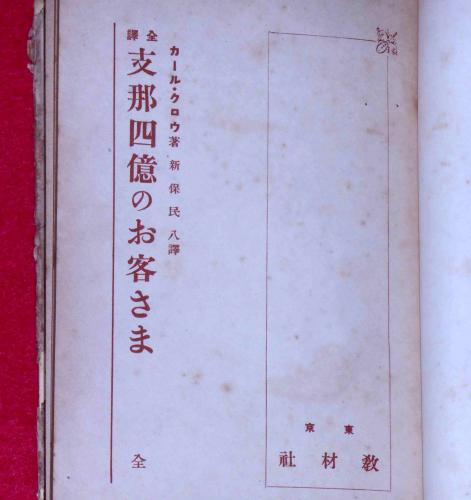 カール・クロウ著 新保民八譯
全譯
支那四億のお客さま
全
東京
敎材社